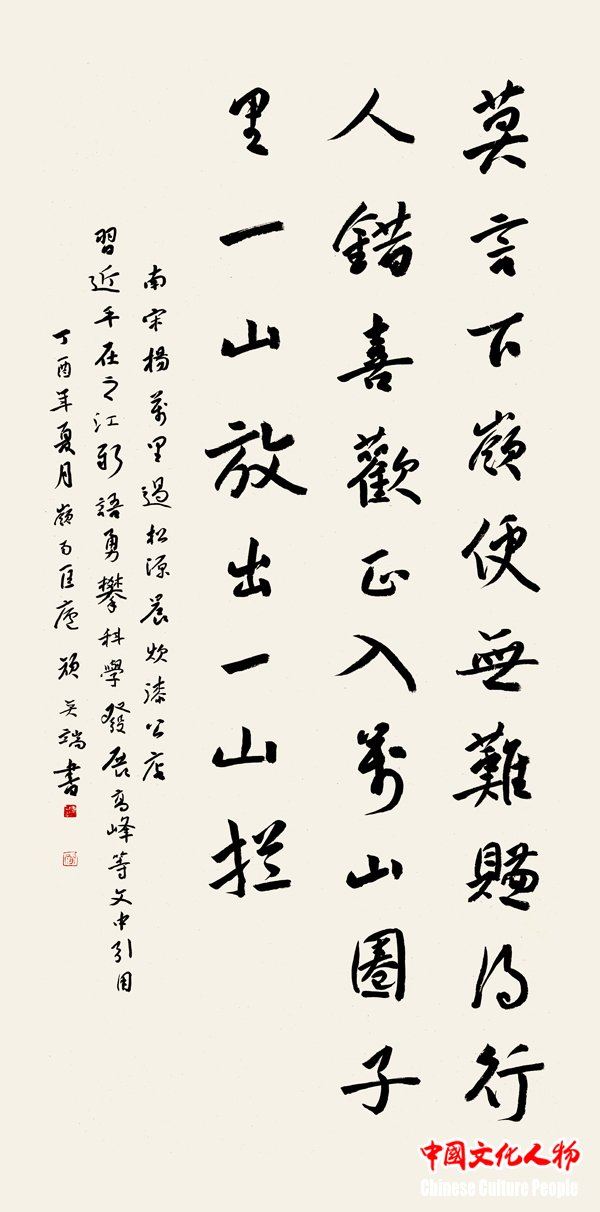 莫言下嶺便無難賺得行
人錯喜歡正入萬山圈子
里一山放出一山拦
南宋楊萬里過松源晨炊漆公店
習近平在之江新語勇攀科學發展高峰等文中引用
丁酉年夏月嶺 端書
中國文化人物
Chinese Culture People